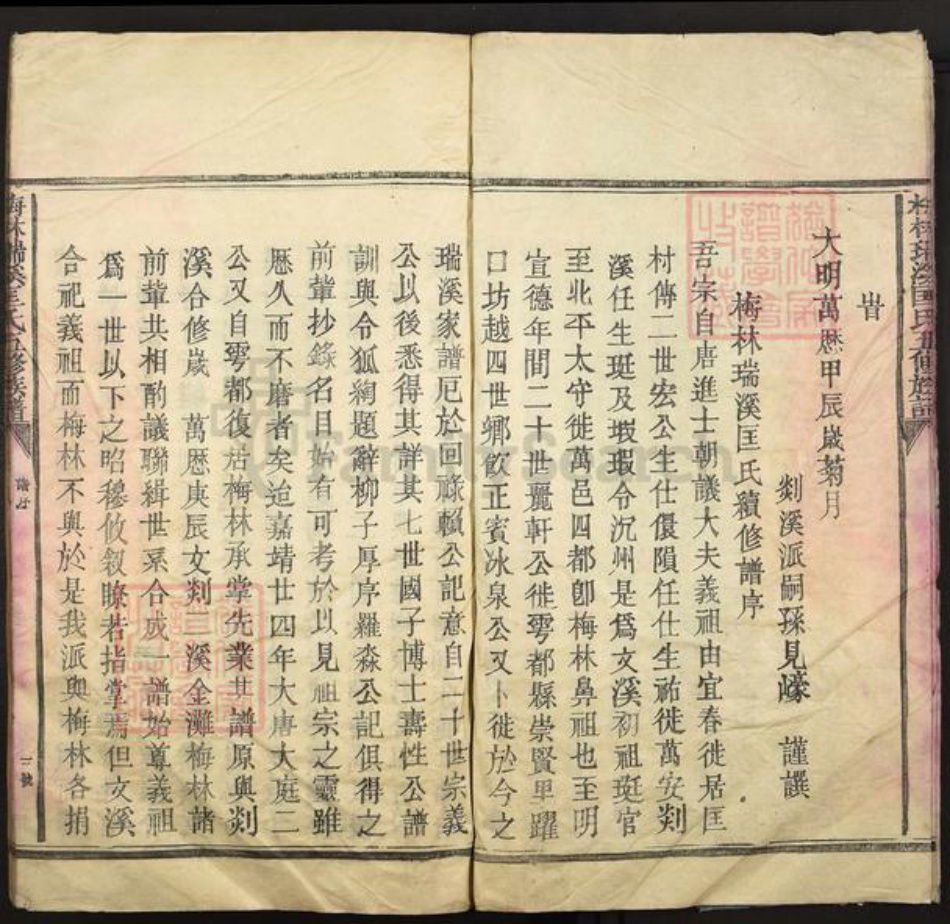 旹
大明萬厯甲辰歲菊月
剡溪派嗣孫見㠙 謹譔
梅林瑞溪匡氏續修譜序
吾宗自唐進士朝議大夫義祖由宜春徙居匡
村傳二世宏公生仕儇隕任仕生祐徙萬安剡
溪任生珽及瑕瑕令沉州是爲文溪初祖珽官
至北平太守徙萬邑四都卽梅林鼻祖也至明
宣德年間二十世麗軒公徙雩都縣崇賢里躍
口坊越四世鄉飲正賓冰泉公又卜徙於今之
瑞溪家譜厄於回祿賴公記意自二十世宗義
公以後悉得其詳其七世國子博士壽性公譜
訓與令狐綯題辭柳子厚序羅淼公記俱得之
前軰抄錄名目始有可考於以見祖宗之靈雖
厯久而不磨者矣迨嘉靖廿四年大唐大庭二
公又自雩都復居梅林承掌先業其譜原與剡
溪合修歲 萬厯庚辰文剡二溪金灘梅林諸
前軰共相酌議聯緝世系合成一譜始尊義祖
爲一世以下之昭穆攸敘瞭若指掌焉但文溪
合祀義祖而梅林不與於是我派與梅林各捐
梅林瑞溪匡氏五修族譜
譜序
三號
FamilySearch